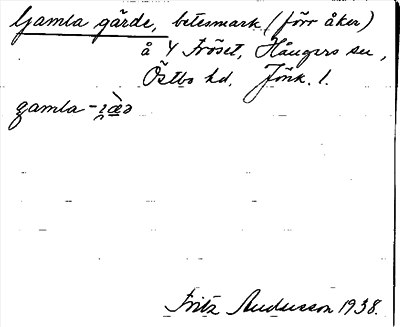 Gamla gärde, betesmark (förr åker)
å 4 Fröset, Hångers sn,
Östbo hd, Jönk. l.
gamla -
Fritz Andersson 1938.